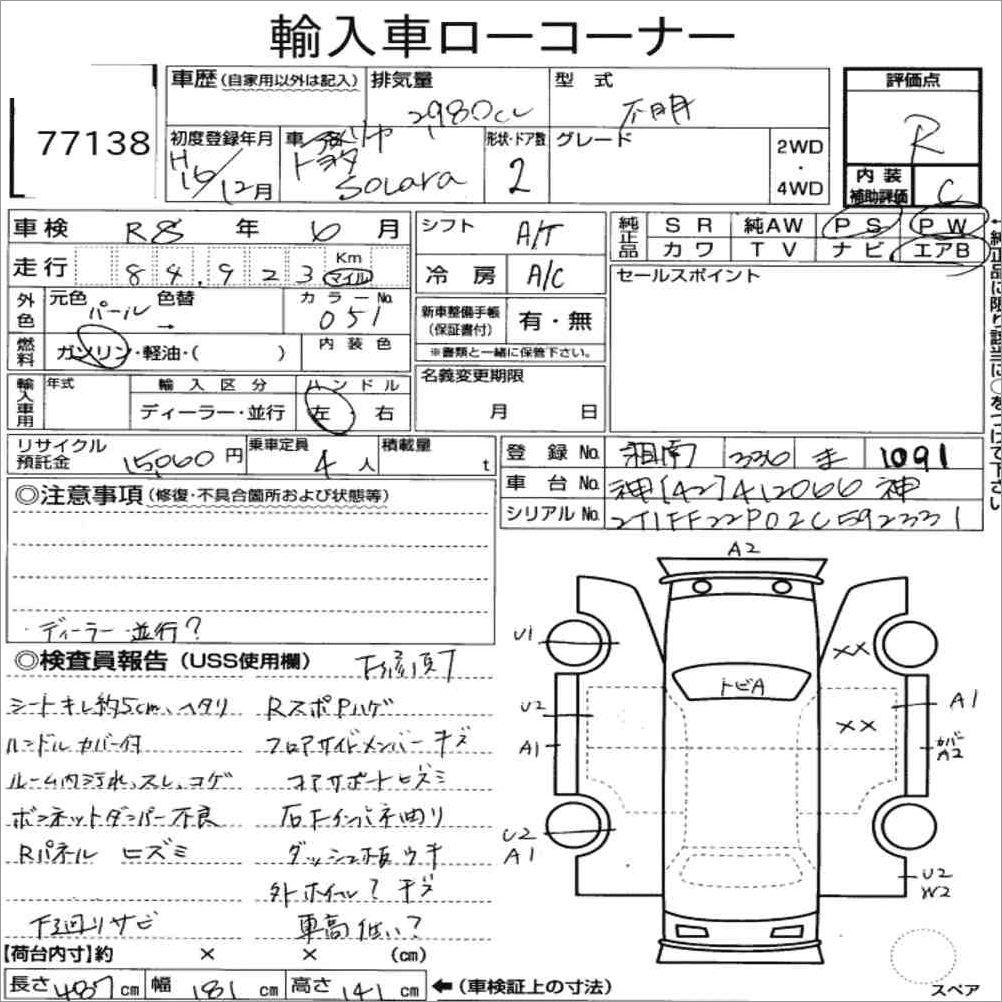 輸入車ローコーナー
77138
車歴 (自家用以外は記入) 排気量 2,980cc 型式 不明
評価点 R
内装補助評価 C
初度登録年月 H16/12月 車名 トヨタ Solara 形状・ドア数 2 グレード 2WD・4WD
車検 R8年 6月
走行 84,923 Km マイル
シフト A/T
冷房 A/C
純正品 SR 純AW PS PW
カワ TV ナビ エアB
←純正品に限り該当に○をつけて下さい
セールスポイント
外色 元色 パール 色替 → カラーNo. 051
燃料 ガソリン・軽油・( ) 内装色
新車整備手帳(保証書付) 有・無
※書類と一緒に保管下さい。
輸入車用 年式 輸入区分 ディーラー・並行 ハンドル 左・右
名義変更期限 月 日
リサイクル預託金 15,060円 乗車定員 4人 積載量 t
登録No. 湘南 330 ま 1091
車台No. 神[42]412066神
シリアルNo. 2T1FF22P02C592331
◎注意事項 (修復・不具合箇所および状態等)
・ディーラー・並行?
◎検査員報告 (USS使用欄) 下修頂7
シートキレ約5cm、ヘタリ RスポPハゲ
ハンドルカバー付 フロアサイドメンバーキズ
ルーム内汚れ、スレ、コゲ コアサポートヒズミ
ボンネットダンパー不良 右Fインパネ曲り
Rパネル ヒズミ ダッシュ板ウキ
外ホイール?キズ
下廻りサビ 車高低い?
【荷台内寸】約 × × (cm)
長さ 487cm 幅 181cm 高さ 141cm ←(車検証上の寸法)
A2
U1
XX
トビA
U2
A1
XX
A1
カバーA2
U2
A1
U2
W2
スペア